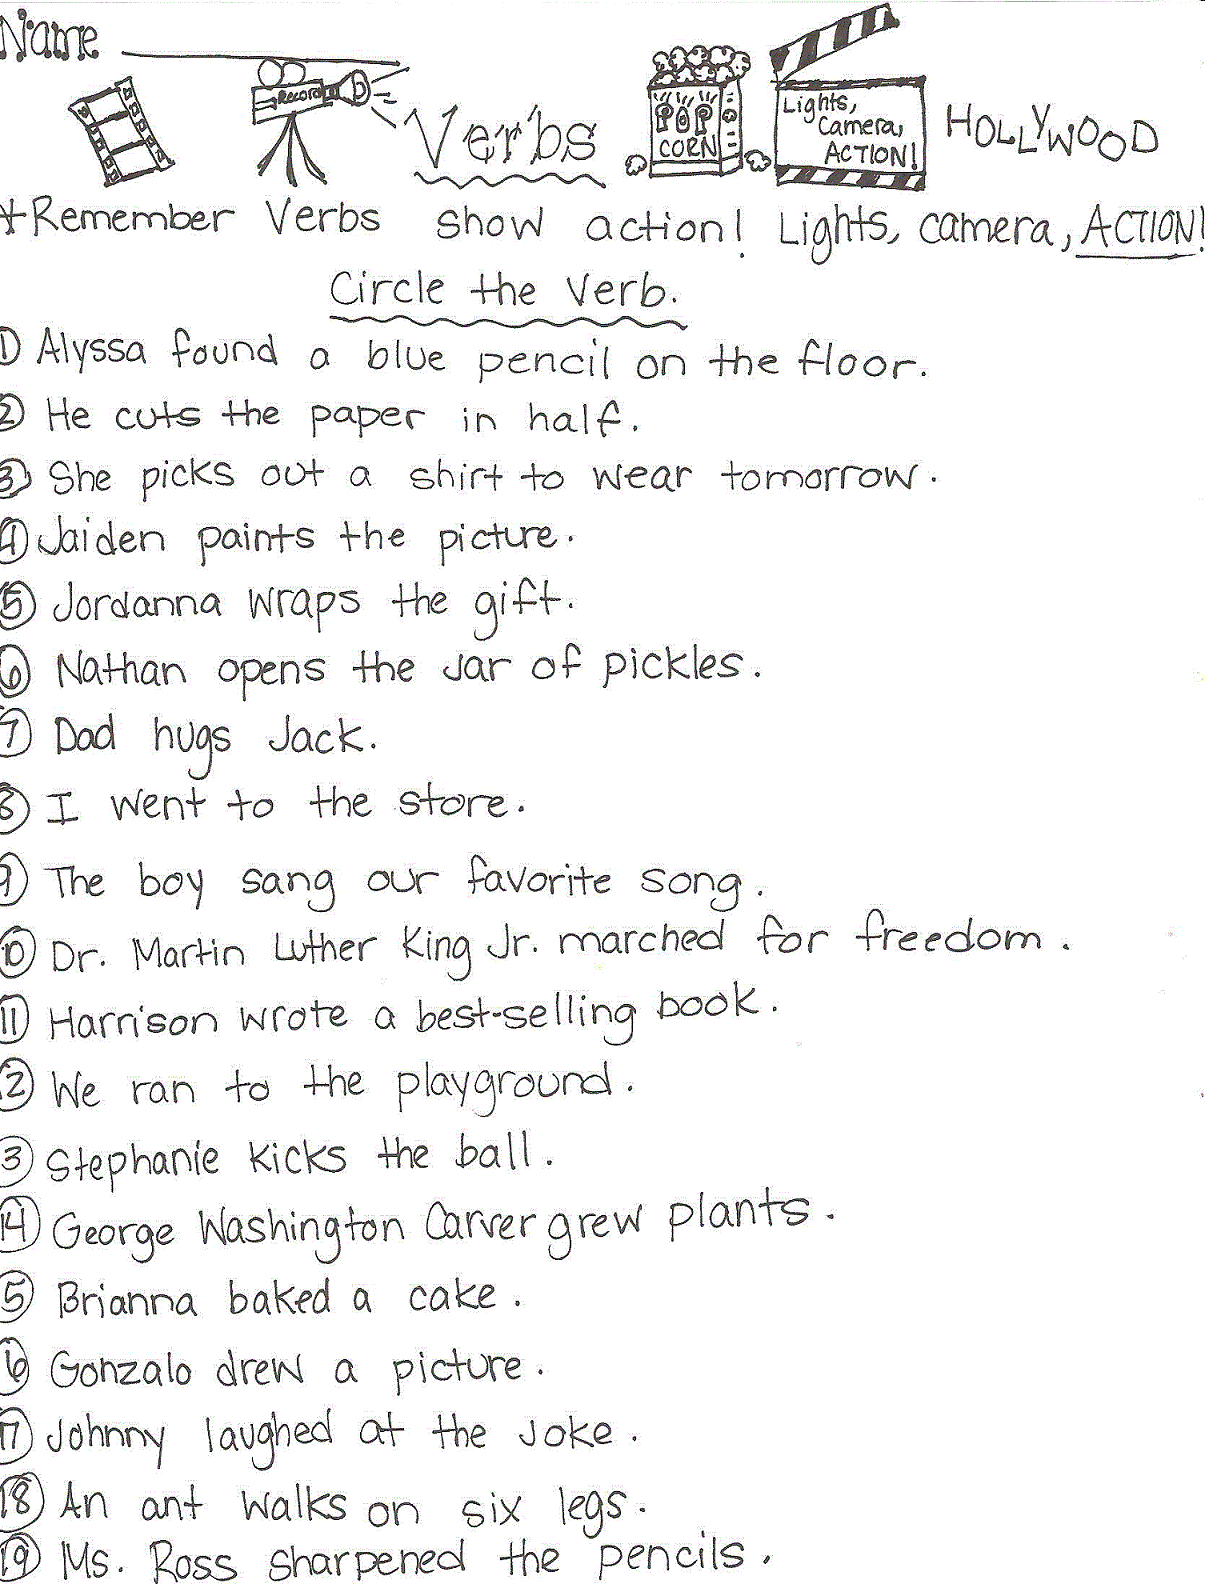 Name
Record
Verbs
POP
CORN
Lights,
Camera,
ACTION!
HOLLYWOOD
*Remember Verbs show action! Lights, camera, ACTION!
Circle the verb.
1 Alyssa found a blue pencil on the floor.
2 He cuts the paper in half.
3 She picks out a shirt to wear tomorrow.
4 Jaiden paints the picture.
5 Jordanna wraps the gift.
6 Nathan opens the jar of pickles.
7 Dad hugs Jack.
8 I went to the store.
9 The boy sang our favorite song.
10 Dr. Martin Luther King Jr. marched for freedom.
11 Harrison wrote a best-selling book.
12 We ran to the playground.
13 Stephanie kicks the ball.
14 George Washington Carver grew plants.
15 Brianna baked a cake.
16 Gonzalo drew a picture.
17 Johnny laughed at the joke.
18 An ant walks on six legs.
19 Ms. Ross sharpened the pencils.